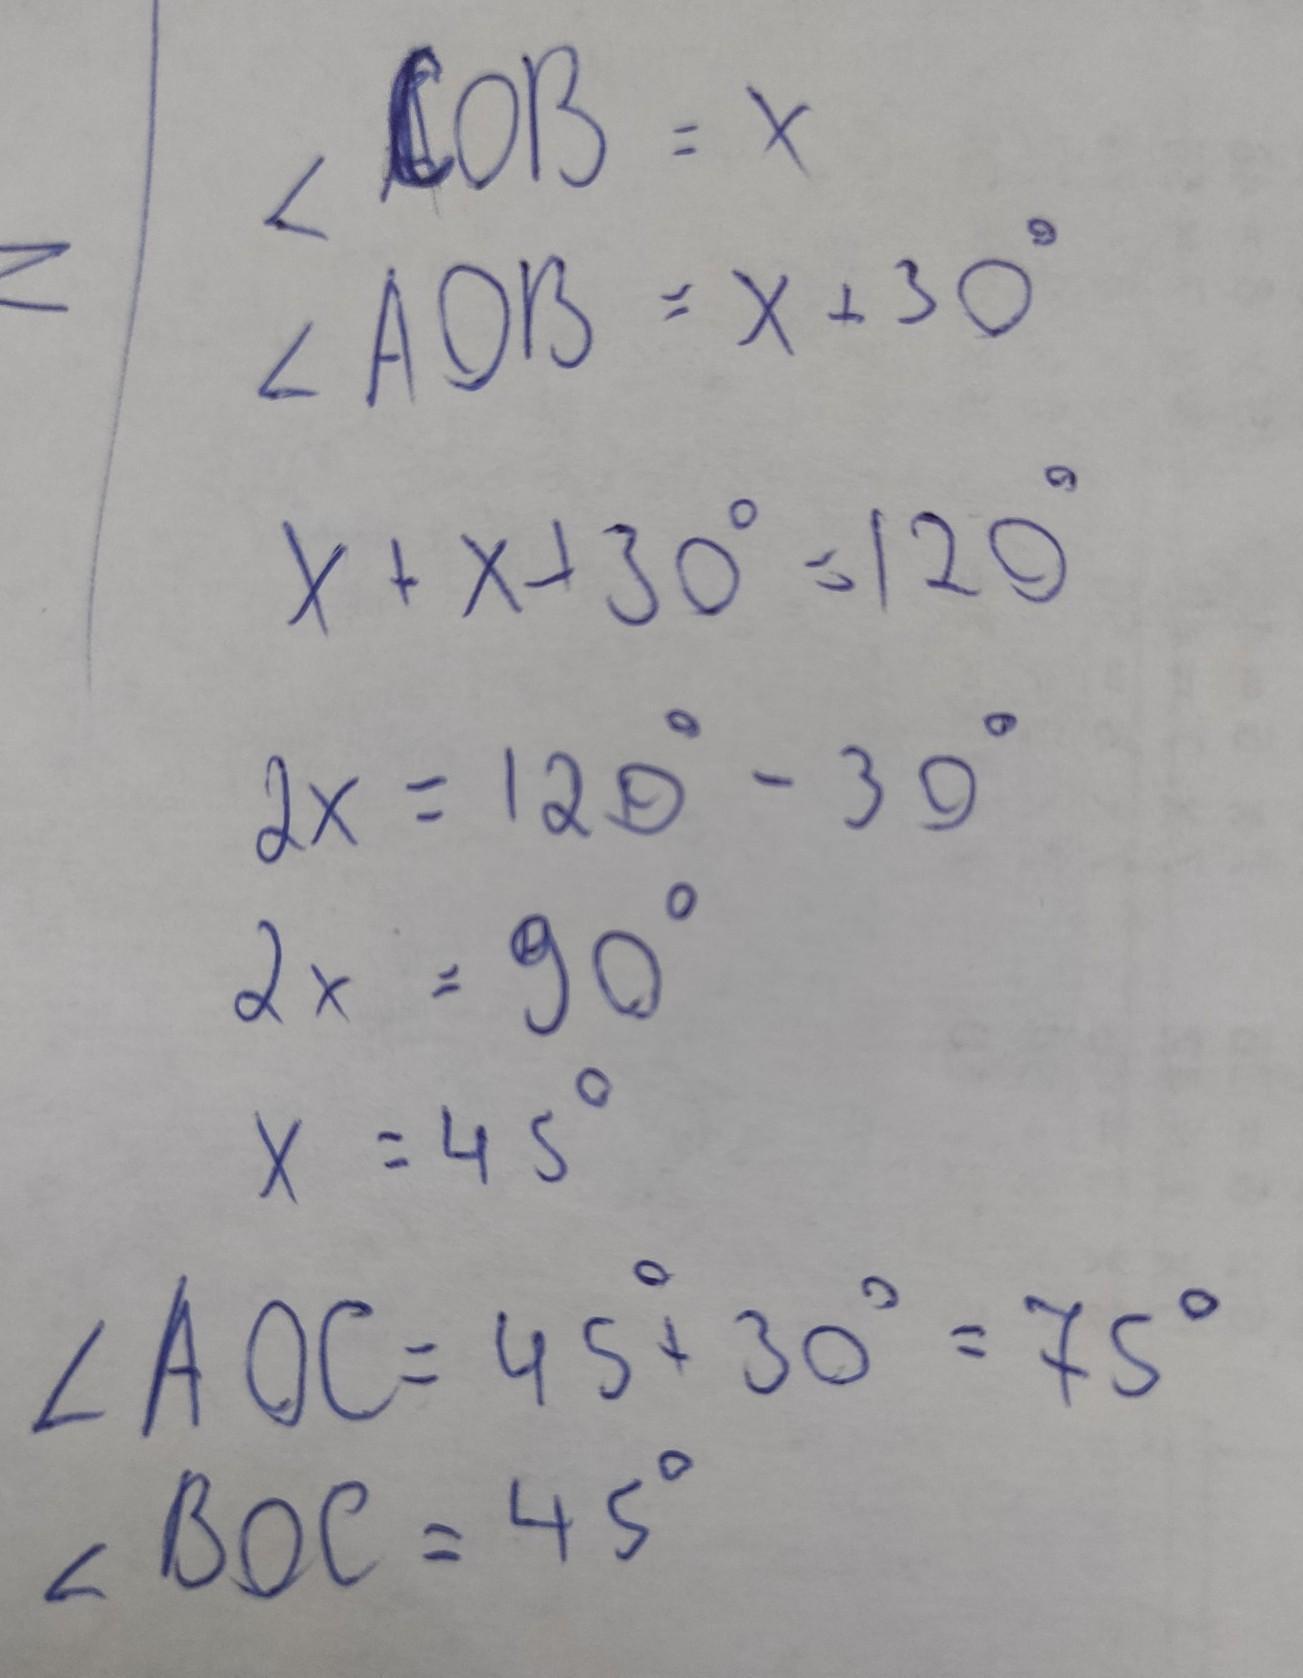 ∠COB = x
∠AOB = x + 30°
x + x + 30° = 120°
2x = 120° - 30°
2x = 90°
x = 45°
∠AOC = 45° + 30° = 75°
∠BOC = 45°